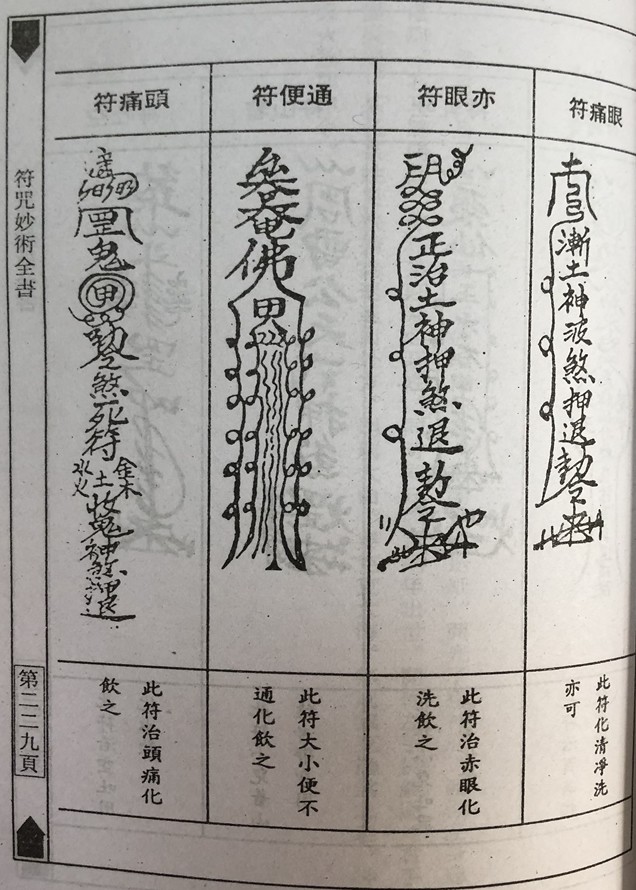 眼痛符
漸土神波煞押退
此符化清淨洗
亦可
亦眼符
正治土神押煞退
此符治赤眼化
洗飲之
通便符
佛
甲
此符大小便不
通化飲之
頭痛符
罡鬼
甲
煞死符
金木
土
水火
收鬼神煞押退
此符治頭痛化
飲之
符咒妙術全書
第二二九頁